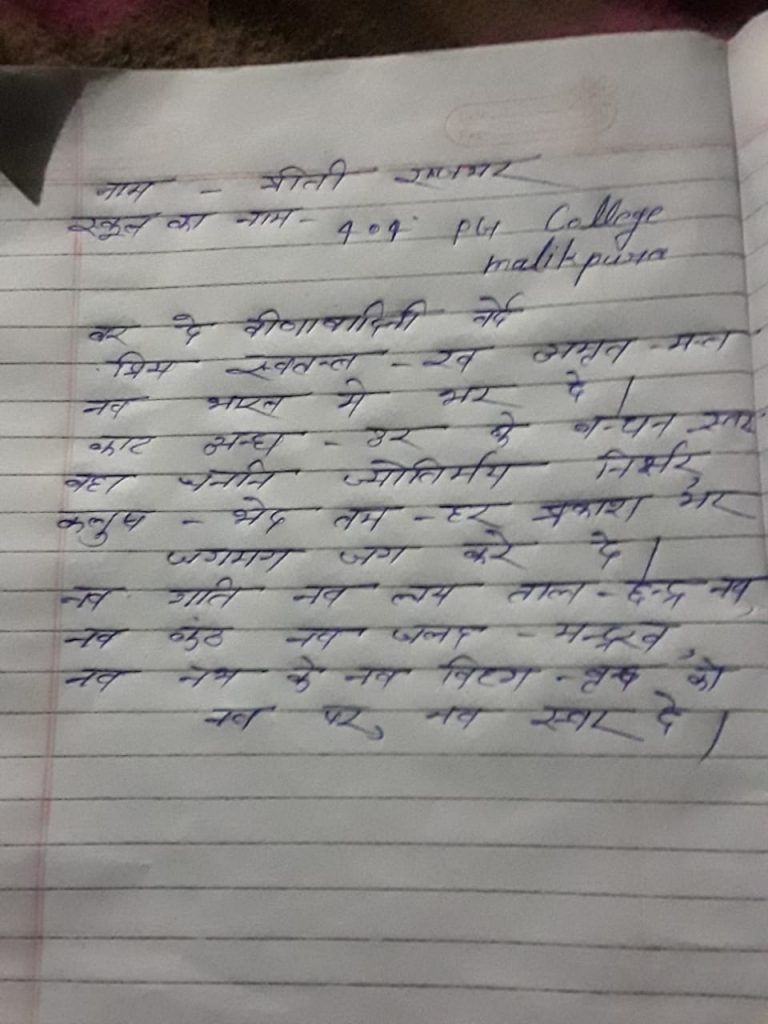 नाम - प्रीती राजभर
स्कूल का नाम - P.G. PG College
malikpura
वर दे वीणावादिनी वर्दे
प्रिय स्वतन्त - रव अमृत - मन्त
नव भारत मे भर दे |
काट अन्ध - उर के बन्धन स्तर
बहा जननि ज्योतिर्मय निर्झर
कलुष - भेद तम - हर प्रकाश भर
जगमग जग करे दे |
नव गति नव लय ताल - छन्द नव,
नव कंठ नव जलद - मन्द्ररव,
नव नभ के नव विहग - वृन्द को
नव पर, नव स्वर दे |